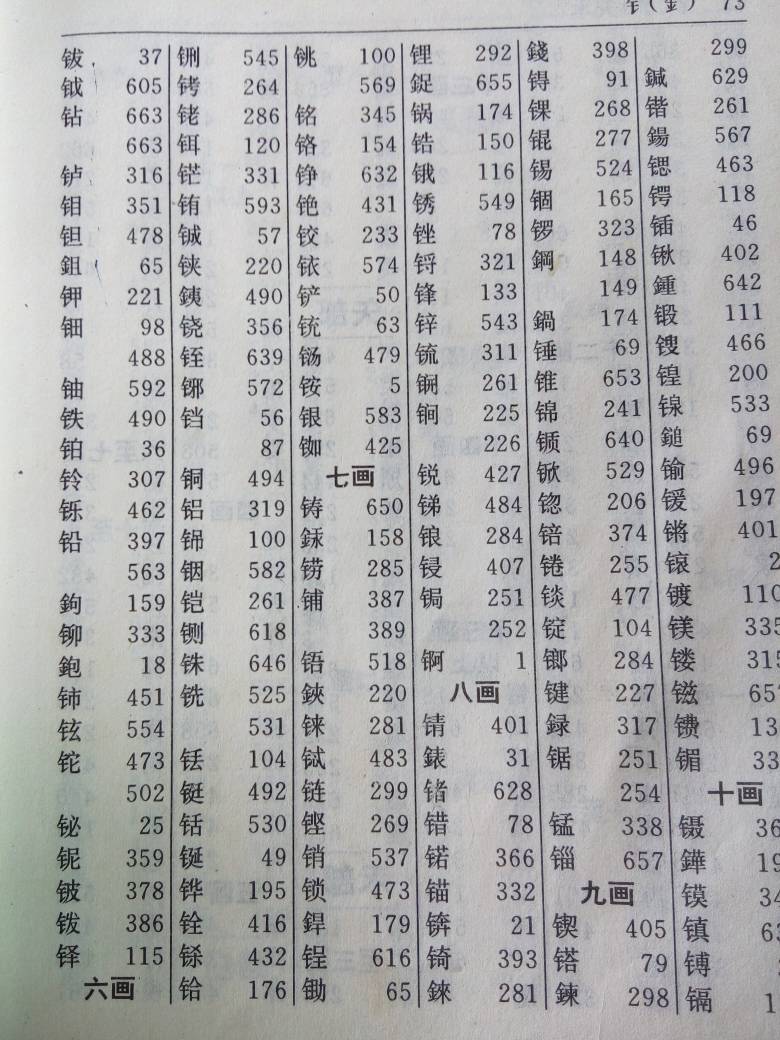 钅(金) 73
钹 37
钺 605
钻 663
663
𬬻 316
钼 351
钽 478
鉏 65
钾 221
钿 98
488
铀 592
铁 490
铂 36
铃 307
铄 462
铅 397
563
鉤 159
铆 333
鉋 18
铈 451
铉 554
铊 473
502
铋 25
铌 359
铍 378
䥽 386
铎 115
六画
铏 545
铐 264
铑 286
铒 120
铓 331
铕 593
铖 57
铗 220
銕 490
铙 356
铚 639
铘 572
铛 56
87
铜 494
铝 319
铞 100
铟 582
铠 261
铡 618
铢 646
铣 525
531
铥 104
铤 492
铦 530
49
铧 195
铨 416
铩 432
铪 176
铫 100
569
铭 345
铬 154
铮 632
铯 431
铰 233
铱 574
铲 50
铳 63
铴 479
铵 5
银 583
铷 425
七画
铸 650
158
铹 285
铺 387
389
铻 518
鋏 220
铼 281
铽 483
链 299
铿 269
销 537
锁 473
銲 179
锃 616
锄 65
锂 292
鋜 655
锅 174
锆 150
锇 116
锈 549
锉 78
锊 321
锋 133
锌 543
锍 311
锎 261
锏 225
226
锐 427
锑 484
锒 284
锓 407
锔 251
252
锕 1
八画
锖 401
錶 31
锗 628
错 78
锘 366
锚 332
锛 21
锜 393
錸 281
錢 398
锝 91
锞 268
锟 277
锡 524
锢 165
锣 323
鋼 148
149
鍋 174
锤 69
锥 653
锦 241
锧 640
锨 529
锪 206
锫 374
锩 255
锬 477
锭 104
𨱍 284
键 227
録 317
锯 251
254
锰 338
锱 657
九画
锲 405
𨱏 79
鍊 298
299
鍼 629
锴 261
鍚 567
锶 463
锷 118
锸 46
锹 402
鍾 642
锻 111
锼 466
锽 200
533
鎚 69
𨱎 496
锾 197
锵 401
锿 2
镀 110
镁 335
镂 315
镃 657
镄 13
镅 33
十画
镊 36
鏵 19
镆 34
镇 63
镈
镉 1